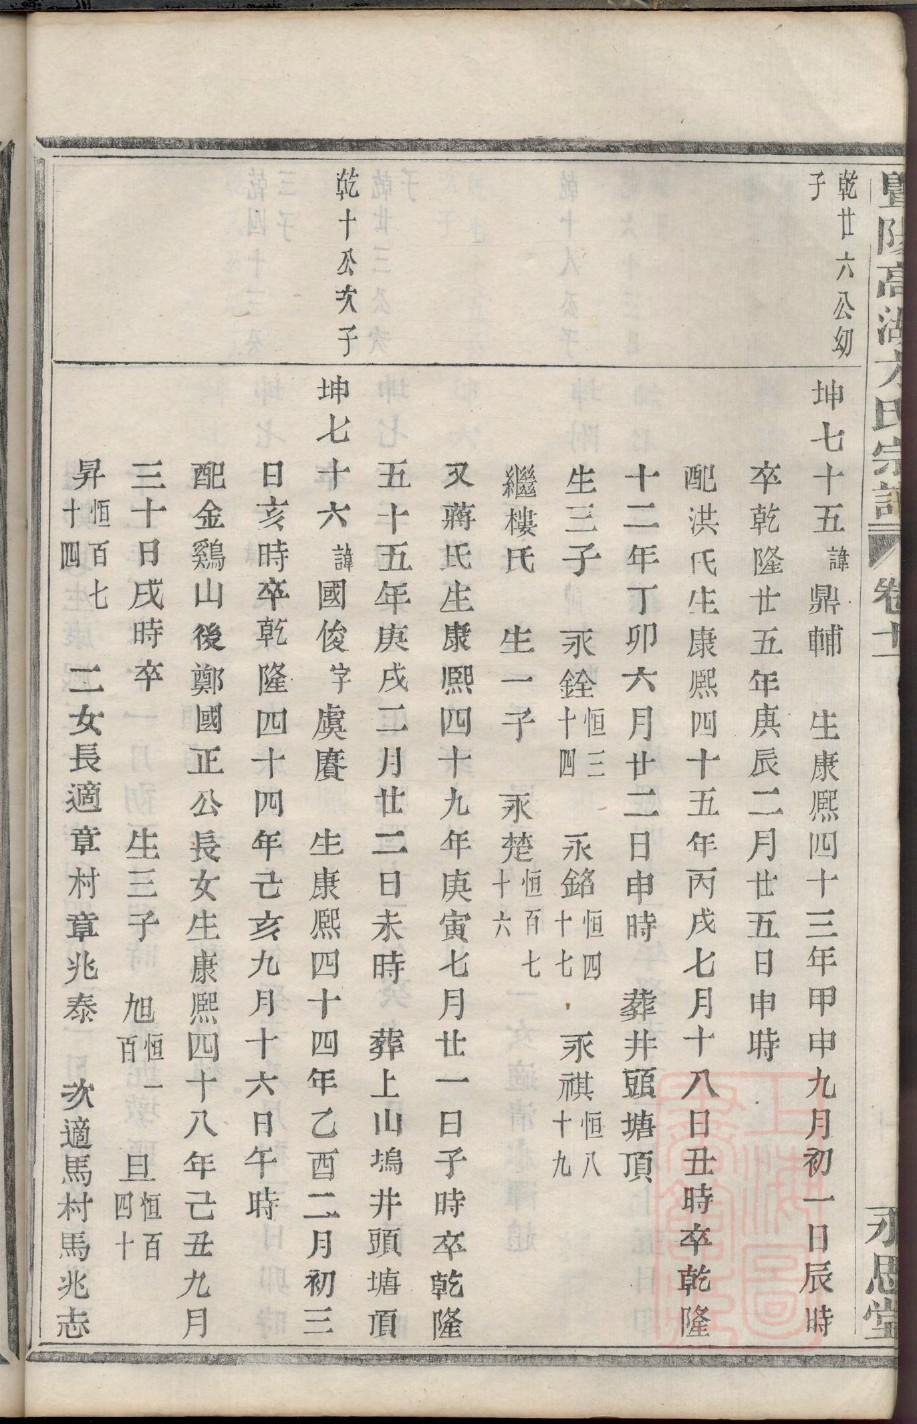 暨陽高湖方氏宗譜 卷十一 永思堂
乾廿六公幼
子
坤七十五諱鼎輔 生康熙四十三年甲申九月初一日辰時
卒乾隆廿五年庚辰二月廿五日申時
配洪氏生康熙四十五年丙戌七月十八日丑時卒乾隆
十二年丁卯六月廿二日申時 葬井頭塘頂
生三子 永銓恒三十四 永銘恒四十七 永祺恒八十九
繼樓氏 生一子 永楚恒百七十六
又蔣氏生康熙四十九年庚寅七月廿一日子時卒乾隆
五十五年庚戌二月廿二日未時 葬上山塢井頭塘頂
乾十公次子
坤七十六諱國俊字虞賡 生康熙四十四年乙酉二月初三
日亥時卒乾隆四十四年己亥九月十六日午時
配金鷄山後鄭國正公長女生康熙四十八年己丑九月
三十日戌時卒 生三子 旭恒一百 旦恒百四十
昇恒百七十四 二女長適章村章兆泰 次適馬村馬兆志